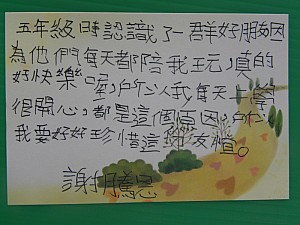 五年級時認識了一群好朋因
為他們每天都陪我玩,真的
好快樂喔,所以我每天上學
很開心,都是這個原因,所以
我要好好珍惜這份友誼。
謝騰恩